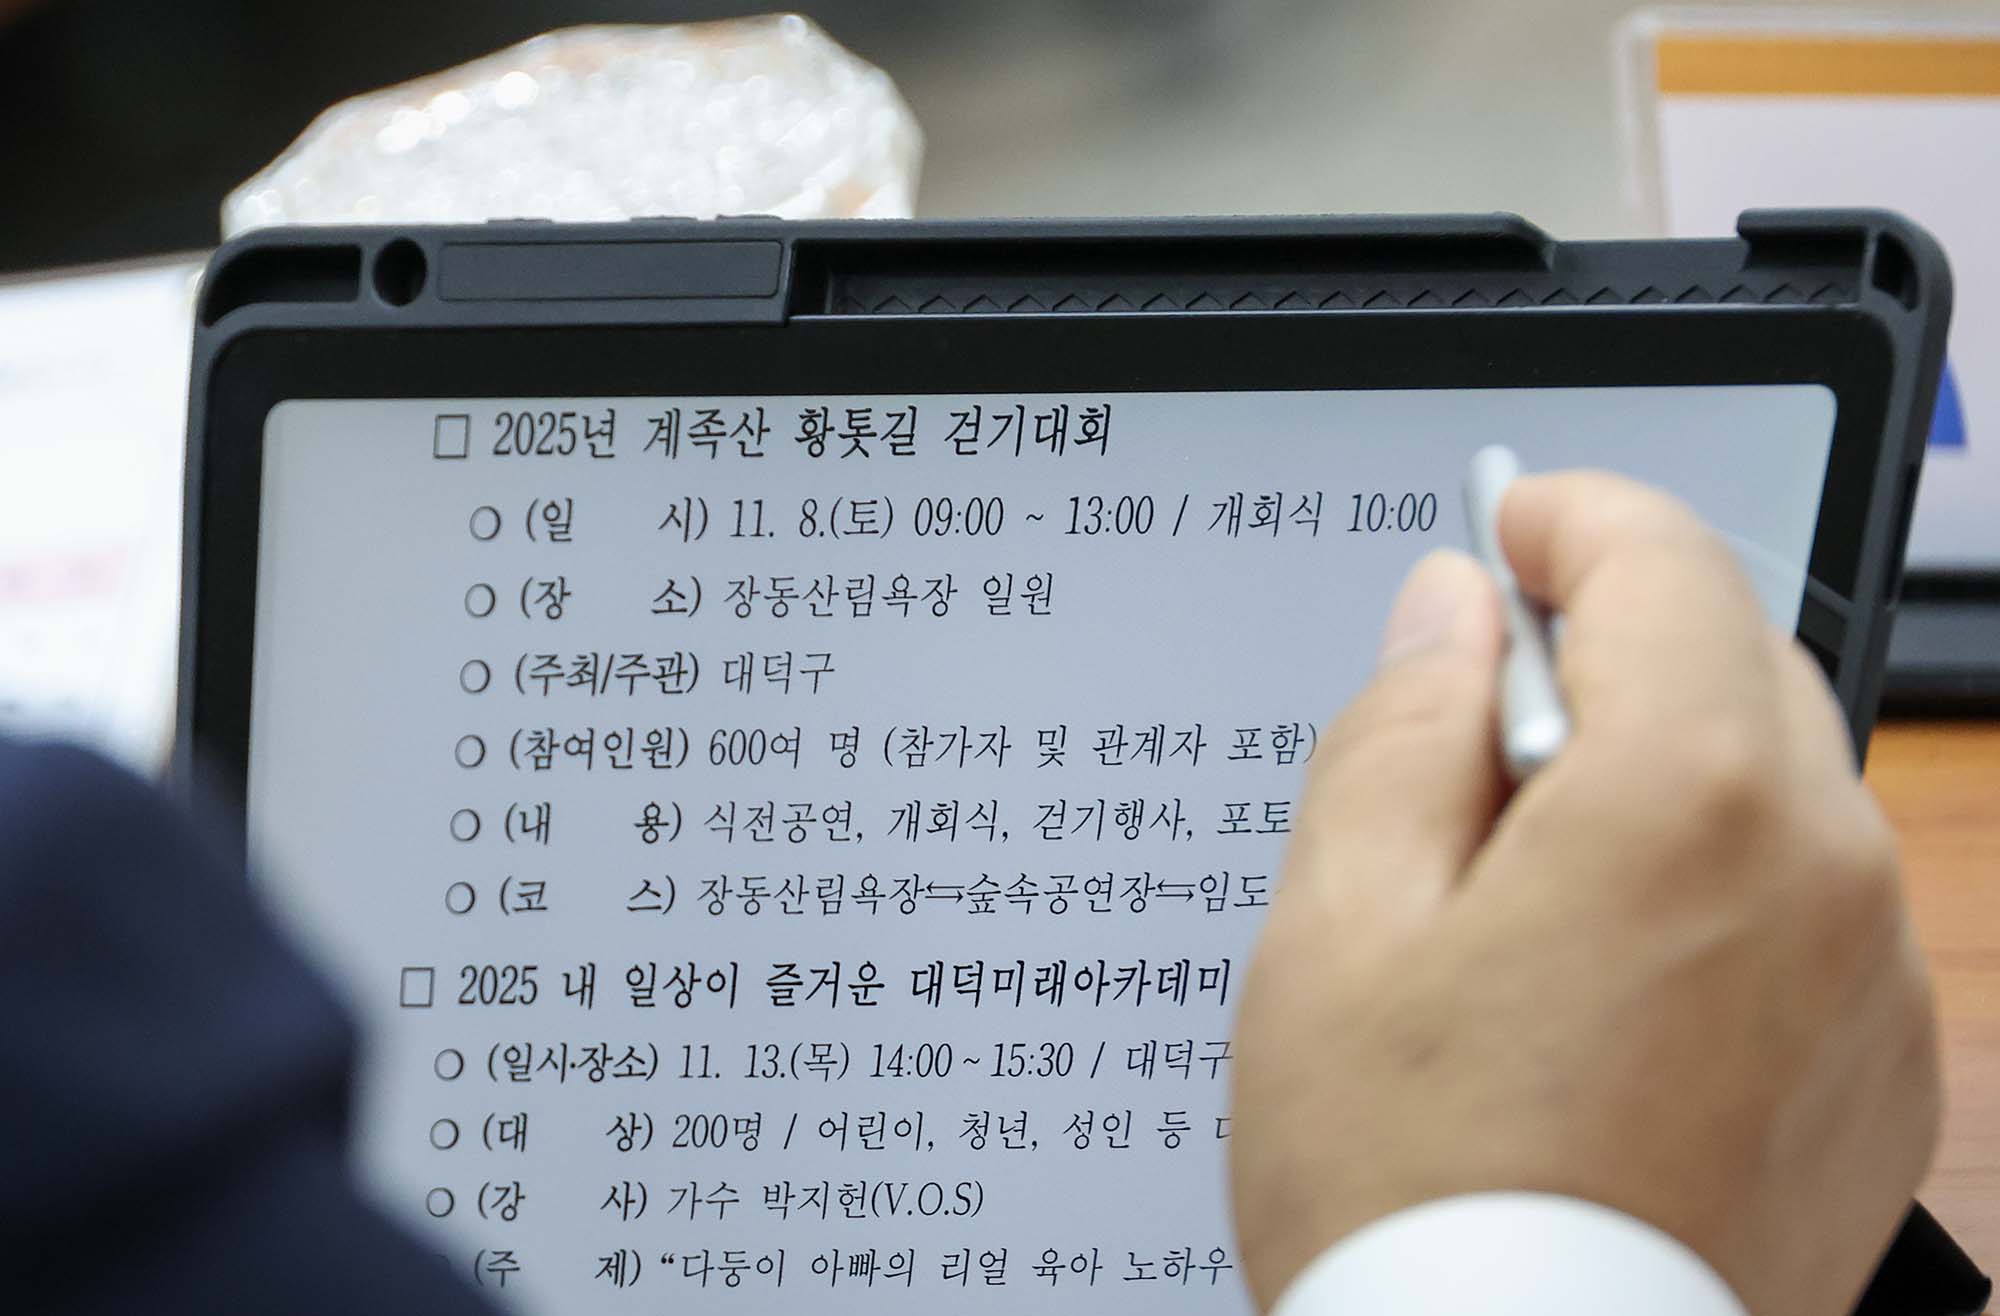 □ 2025년 계족산 황톳길 걷기대회
○ (일 시) 11. 8.(토) 09:00 ~ 13:00 / 개회식 10:00
○ (장 소) 장동산림욕장 일원
○ (주최/주관) 대덕구
○ (참여인원) 600여 명 (참가자 및 관계자 포함)
○ (내 용) 식전공연, 개회식, 걷기행사, 포토
○ (코 스) 장동산림욕장⇆숲속공연장⇆임도
□ 2025 내 일상이 즐거운 대덕미래아카데미
○ (일시·장소) 11. 13.(목) 14:00 ~ 15:30 / 대덕구
○ (대 상) 200명 / 어린이, 청년, 성인 등
○ (강 사) 가수 박지헌(V.O.S)
(주 제) “다둥이 아빠의 리얼 육아 노하우